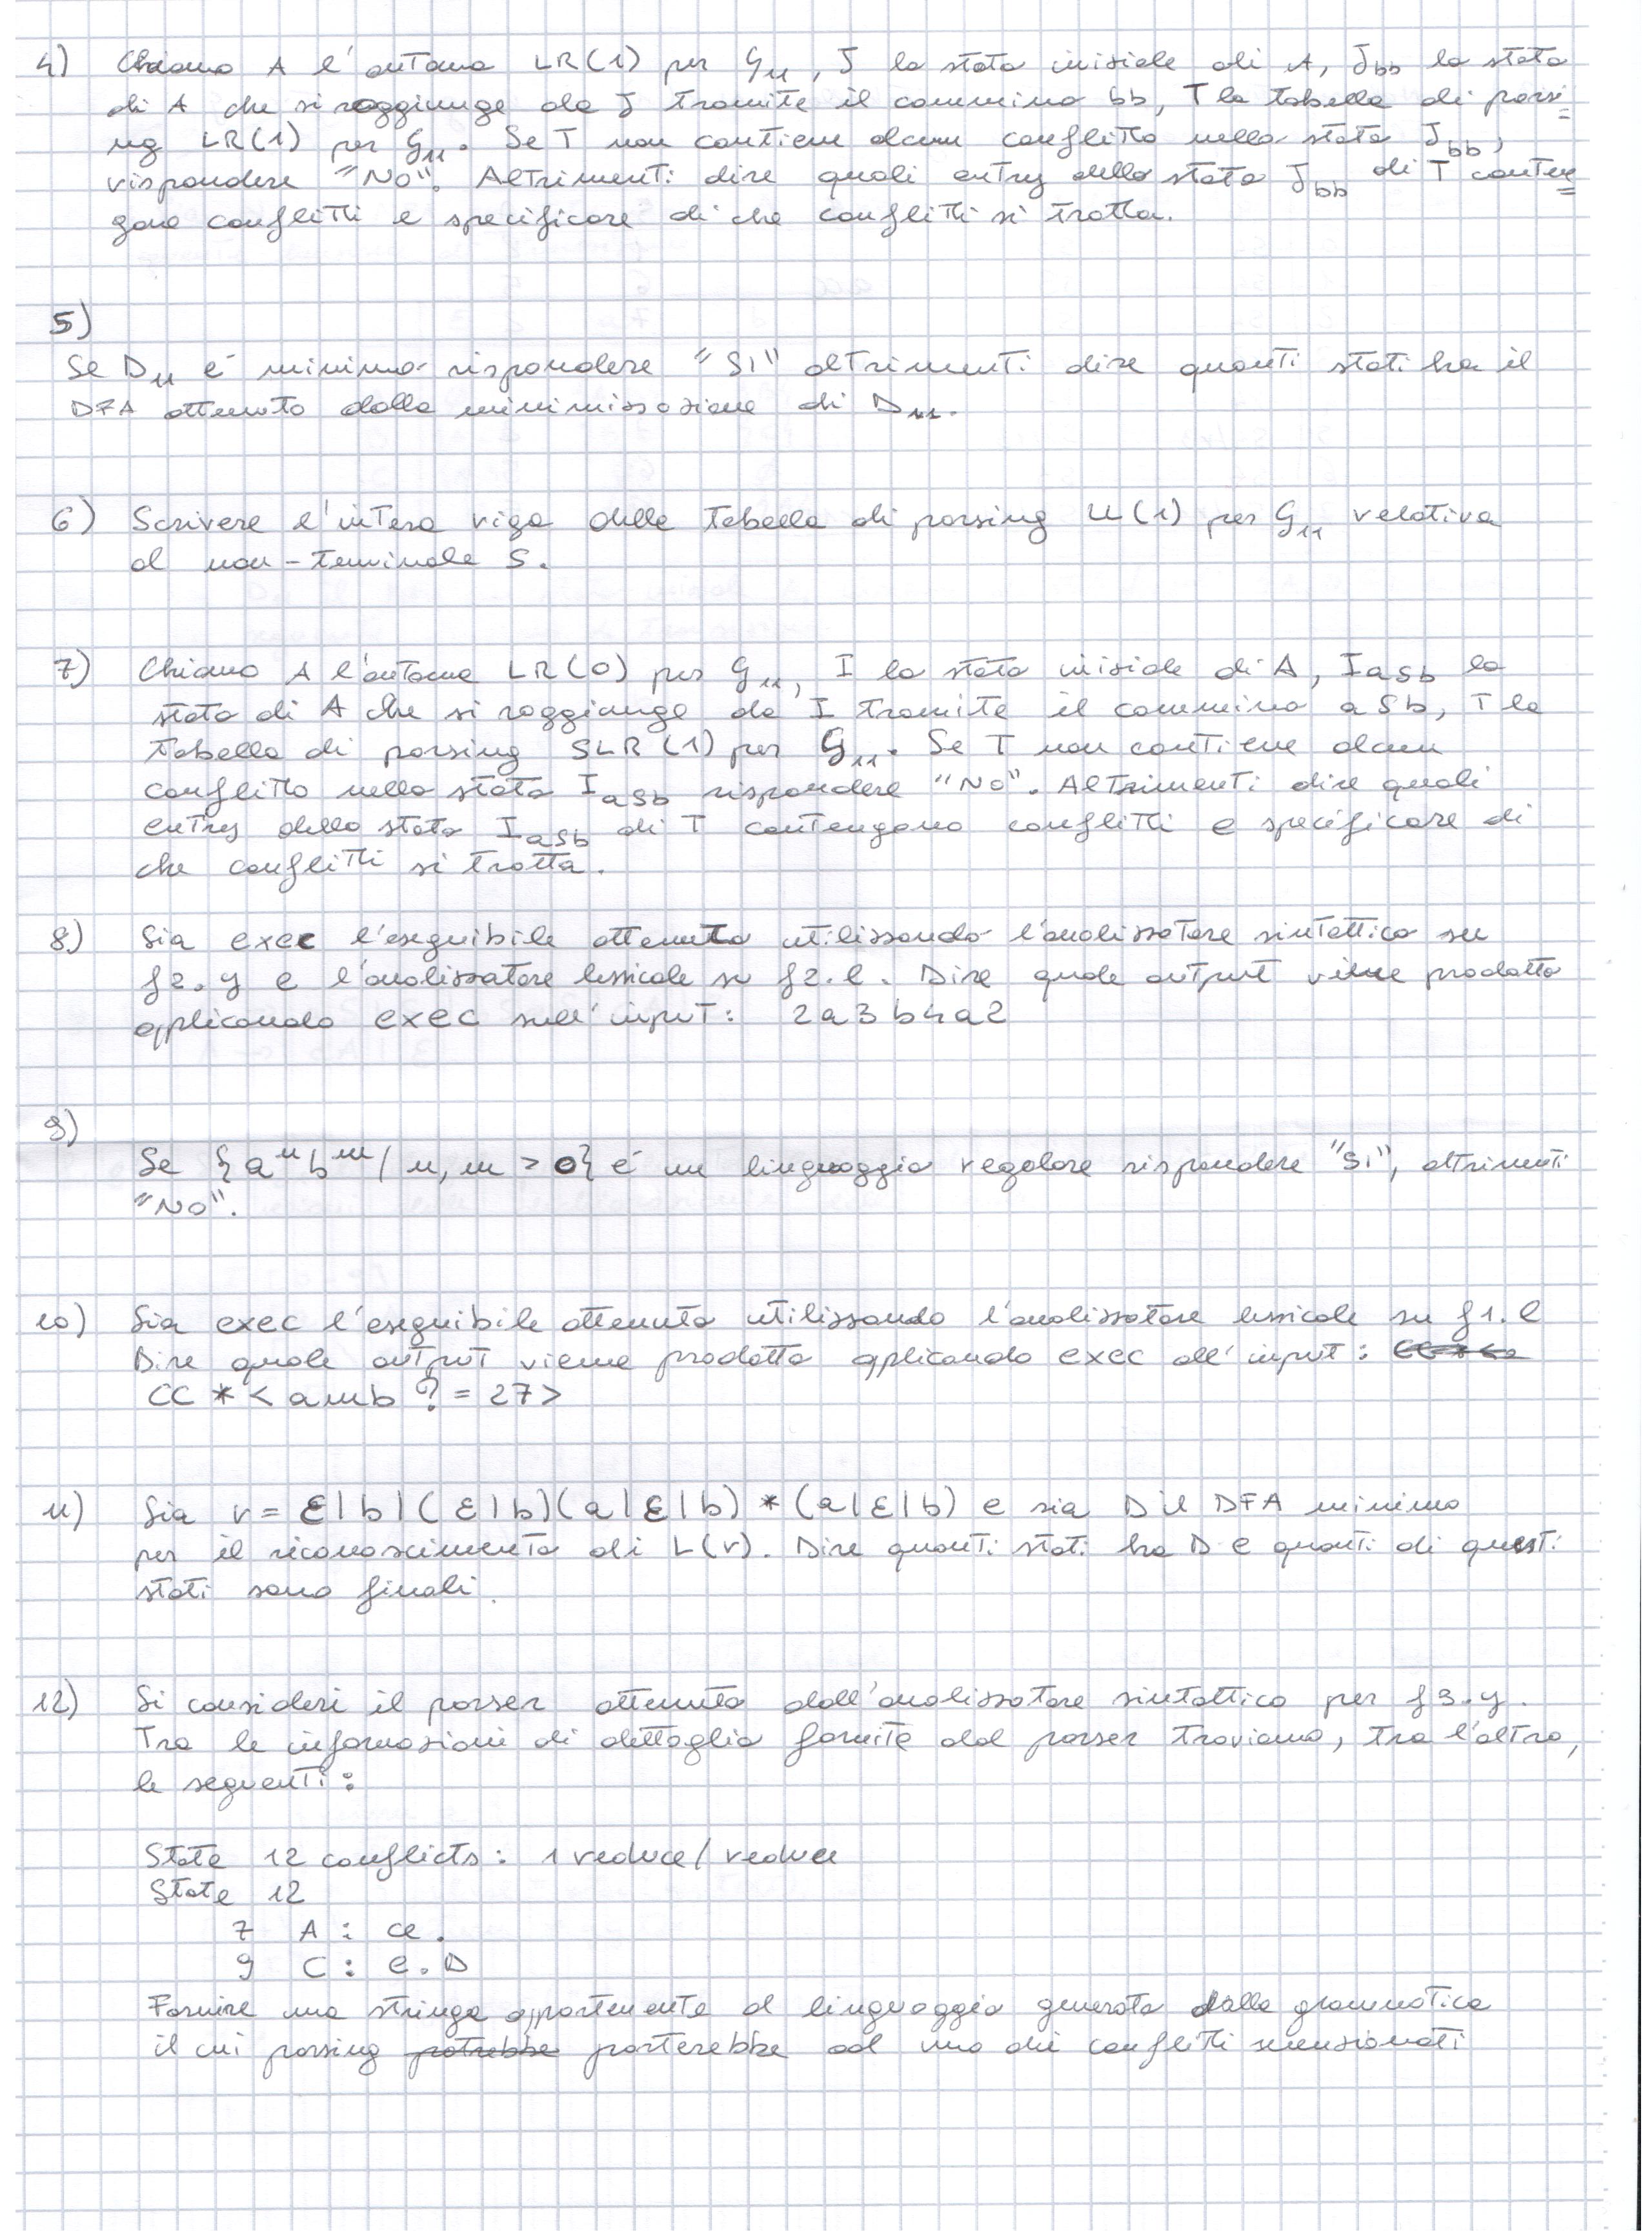 4) Chiamo A l'automa LR(1) per G11, J lo stato iniziale di A, Jbb lo stato
di A che si raggiunge da J tramite il cammino bb, T la tabella di parsi=
ng LR(1) per G11. Se T non contiene alcun conflitto nello stato Jbb,
rispondere "NO". Altrimenti dire quali entry dello stato Jbb di T conten=
gono conflitti e specificare di che conflitti si tratta.
5)
Se D11 é minimo rispondere "SI" altrimenti dire quanti stati ha il
DFA ottenuto dalla minimizzazione di D11.
6) Scrivere l'intera riga della tabella di parsing LL(1) per G11 relativa
al non-terminale S.
7) Chiamo A l'automa LR(0) per G11, I lo stato iniziale di A, IaSb lo
stato di A che si raggiunge da I tramite il cammino aSb, T la
tabella di parsing SLR(1) per G11. Se T non contiene alcun
conflitto nello stato IaSb rispondere "NO". Altrimenti dire quali
entry dello stato IaSb di T contengono conflitti e specificare di
che conflitti si tratta.
8) Sia exec l'eseguibile ottenuto utilizzando l'analizzatore sintattico su
f2.y e l'analizzatore lessicale su f2.l. Dire quale output viene prodotto
applicando exec sull'input: 2a3b4a2
9)
Se {a^n b^m / n, m > 0} é un linguaggio regolare rispondere "SI", altrimenti
"NO".
10) Sia exec l'eseguibile ottenuto utilizzando l'analizzatore lessicale su f1.l
Dire quale output viene prodotto applicando exec all'input:
CC * < amb ? = 27 >
11) Sia r = ε|b|(ε|b)(a|ε|b)*(a|ε|b) e sia D il DFA minimo
per il riconoscimento di L(r). Dire quanti stati ha D e quanti di questi
stati sono finali.
12) Si consideri il parser ottenuto dall'analizzatore sintattico per f3.y.
Tra le informazioni di dettaglio fornite dal parser troviamo, tra l'altro,
le seguenti:
State 12 conflicts: 1 reduce/reduce
State 12
7 A: ce.
9 C: e.D
Fornire una stringa appartenente al linguaggio generato dalla grammatica
il cui parsing potrebbe porterebbe ad uno dei conflitti menzionati